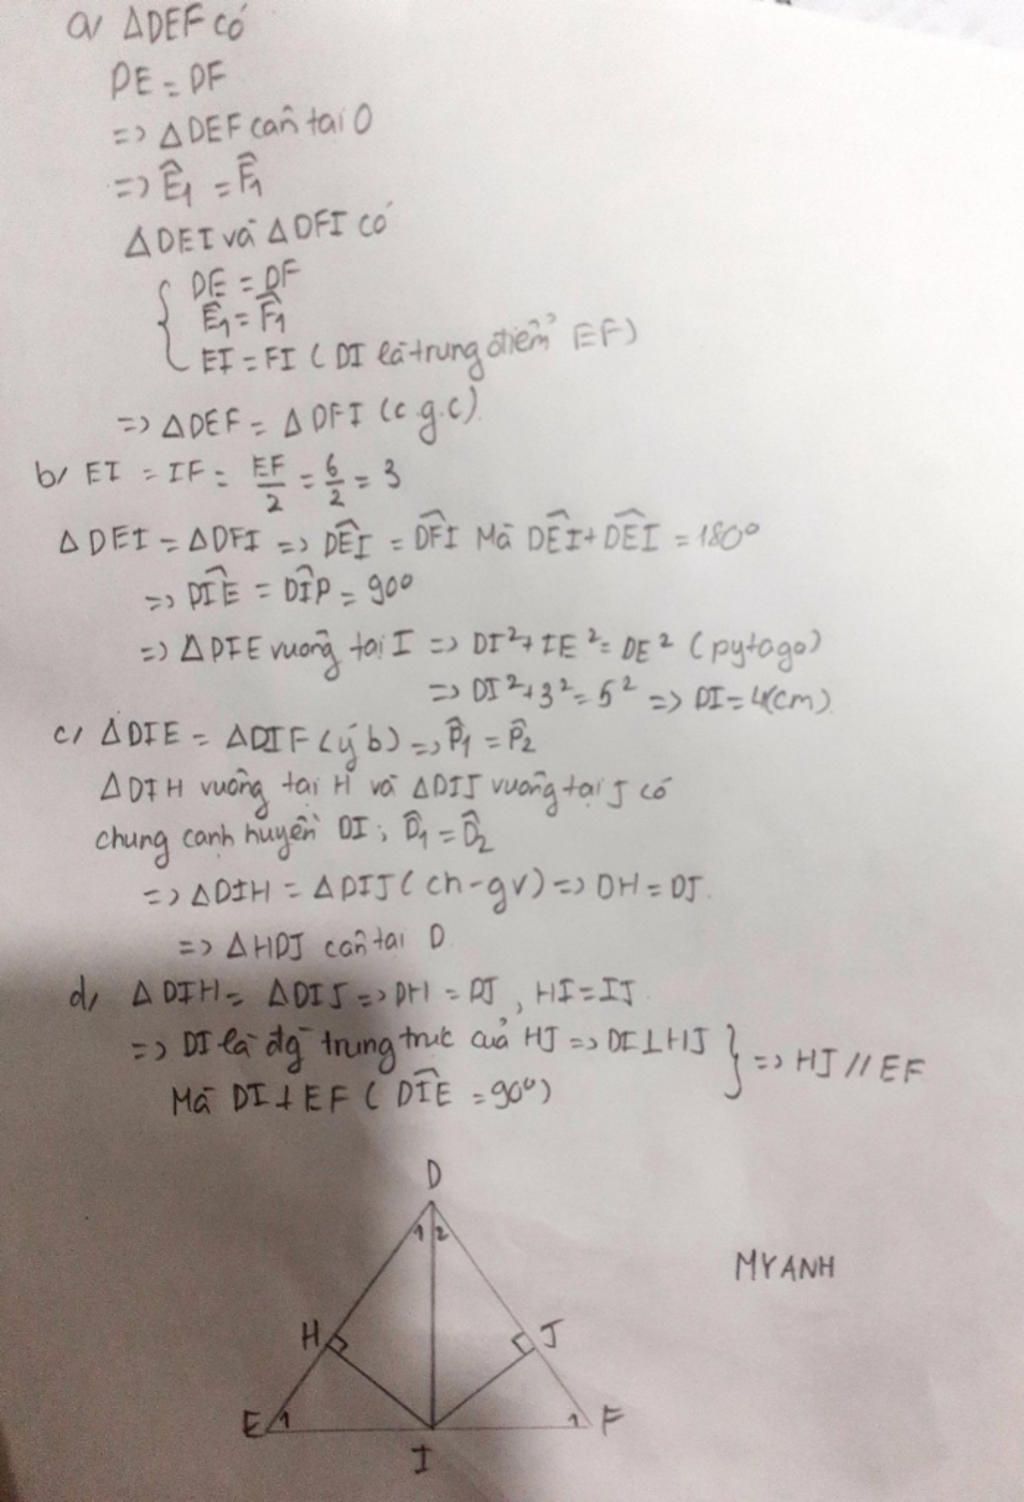 a/ ΔDEF có
DE = DF
=> ΔDEF cân tại D
=> Ê₁ = F̂₁
ΔDEI và ΔDFI có
DE = DF
Ê₁ = F̂₁
EI = FI ( DI là trung điểm EF)
=> ΔDEF = ΔDFI (c.g.c)
b/ EI = IF = EF/2 = 6/2 = 3
ΔDEI = ΔDFI => DÊI = DF̂I Mà DÊI + DÊI = 180°
=> DÎE = DÎP = 90°
=> ΔDIE vuông tại I => DI² + IE² = DE² (pytago)
=> DI² + 3² = 5² => DI = 4(cm)
c/ ΔDIE = ΔDIF (ý b) => D̂₁ = D̂₂
ΔDIH vuông tại H và ΔDIJ vuông tại J có
chung cạnh huyền DI ; D̂₁ = D̂₂
=> ΔDIH = ΔDIJ (ch-gv) => DH = DJ.
=> ΔHDJ cân tại D
d/ ΔDIH = ΔDIJ => DH = DJ , HI = IJ
=> DI là đg trung trực của HJ => DI ⊥ HJ } => HJ // EF
Mà DI ⊥ EF ( DÎE = 90°)
D
1 2
MY ANH
H J
E 1 1 F
I